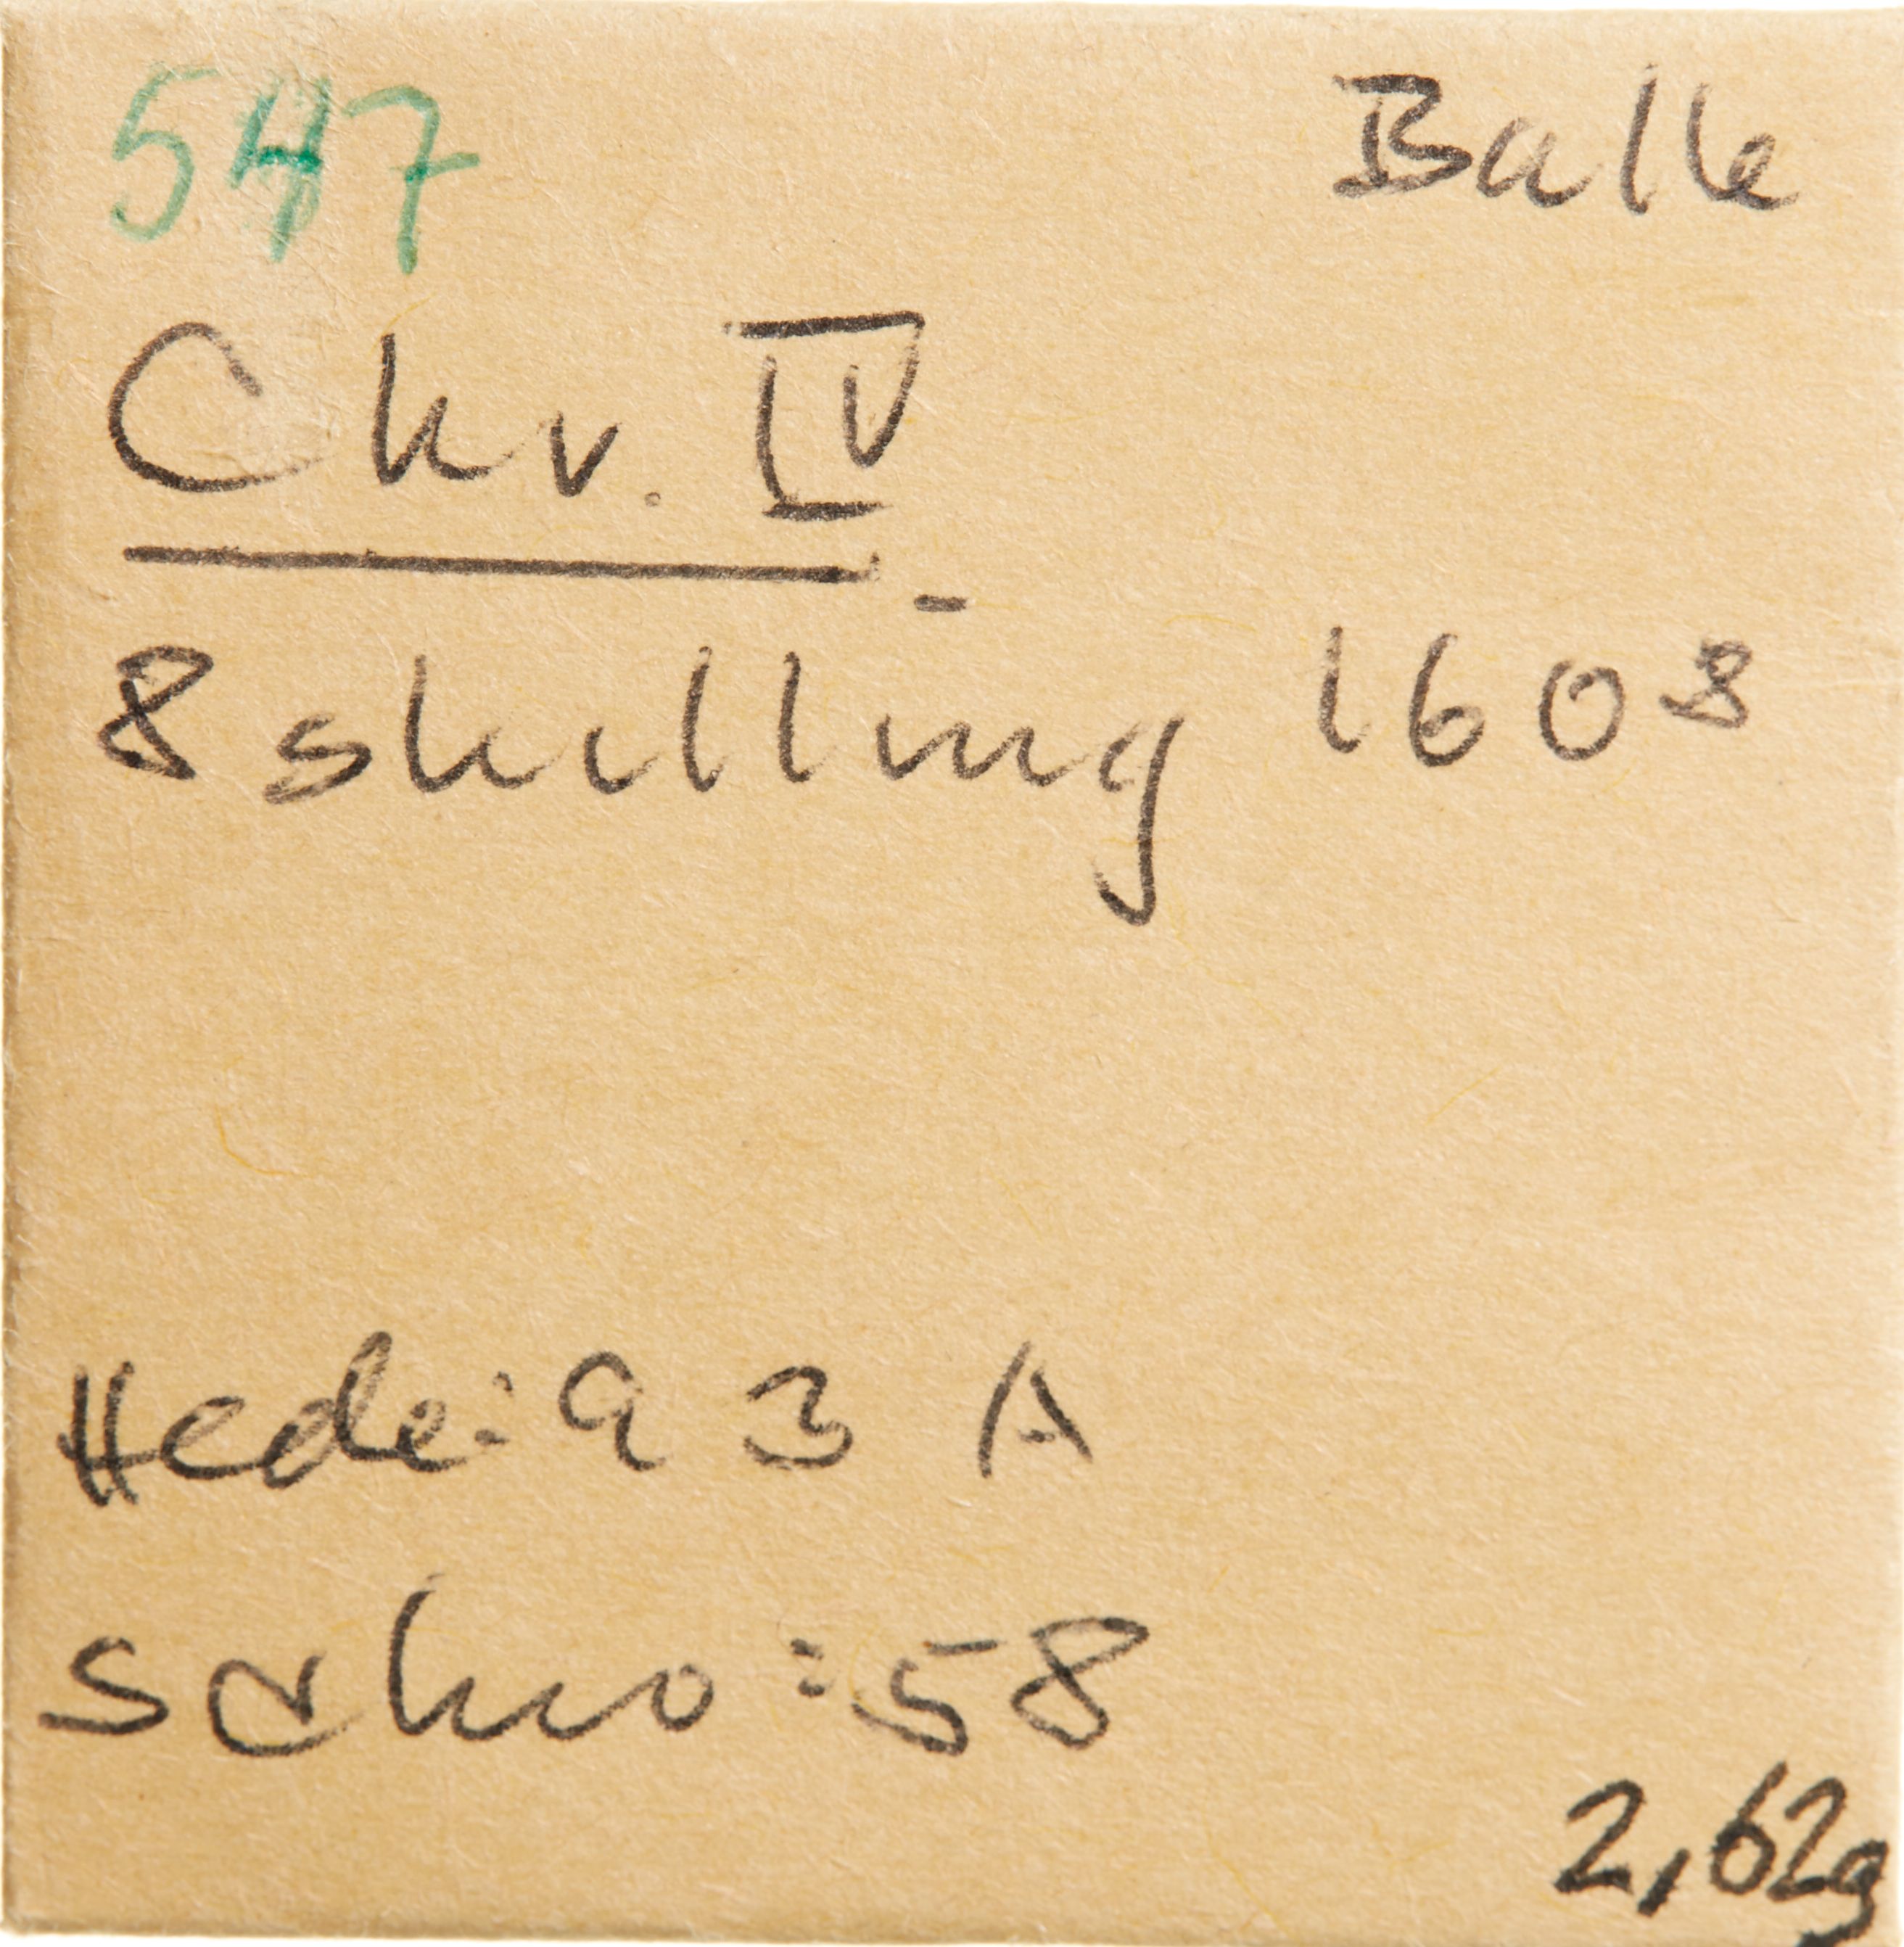 547 Balle
Chr. IV
8 skilling 1608
Hede: 93 A
Schou: 58
2,62g